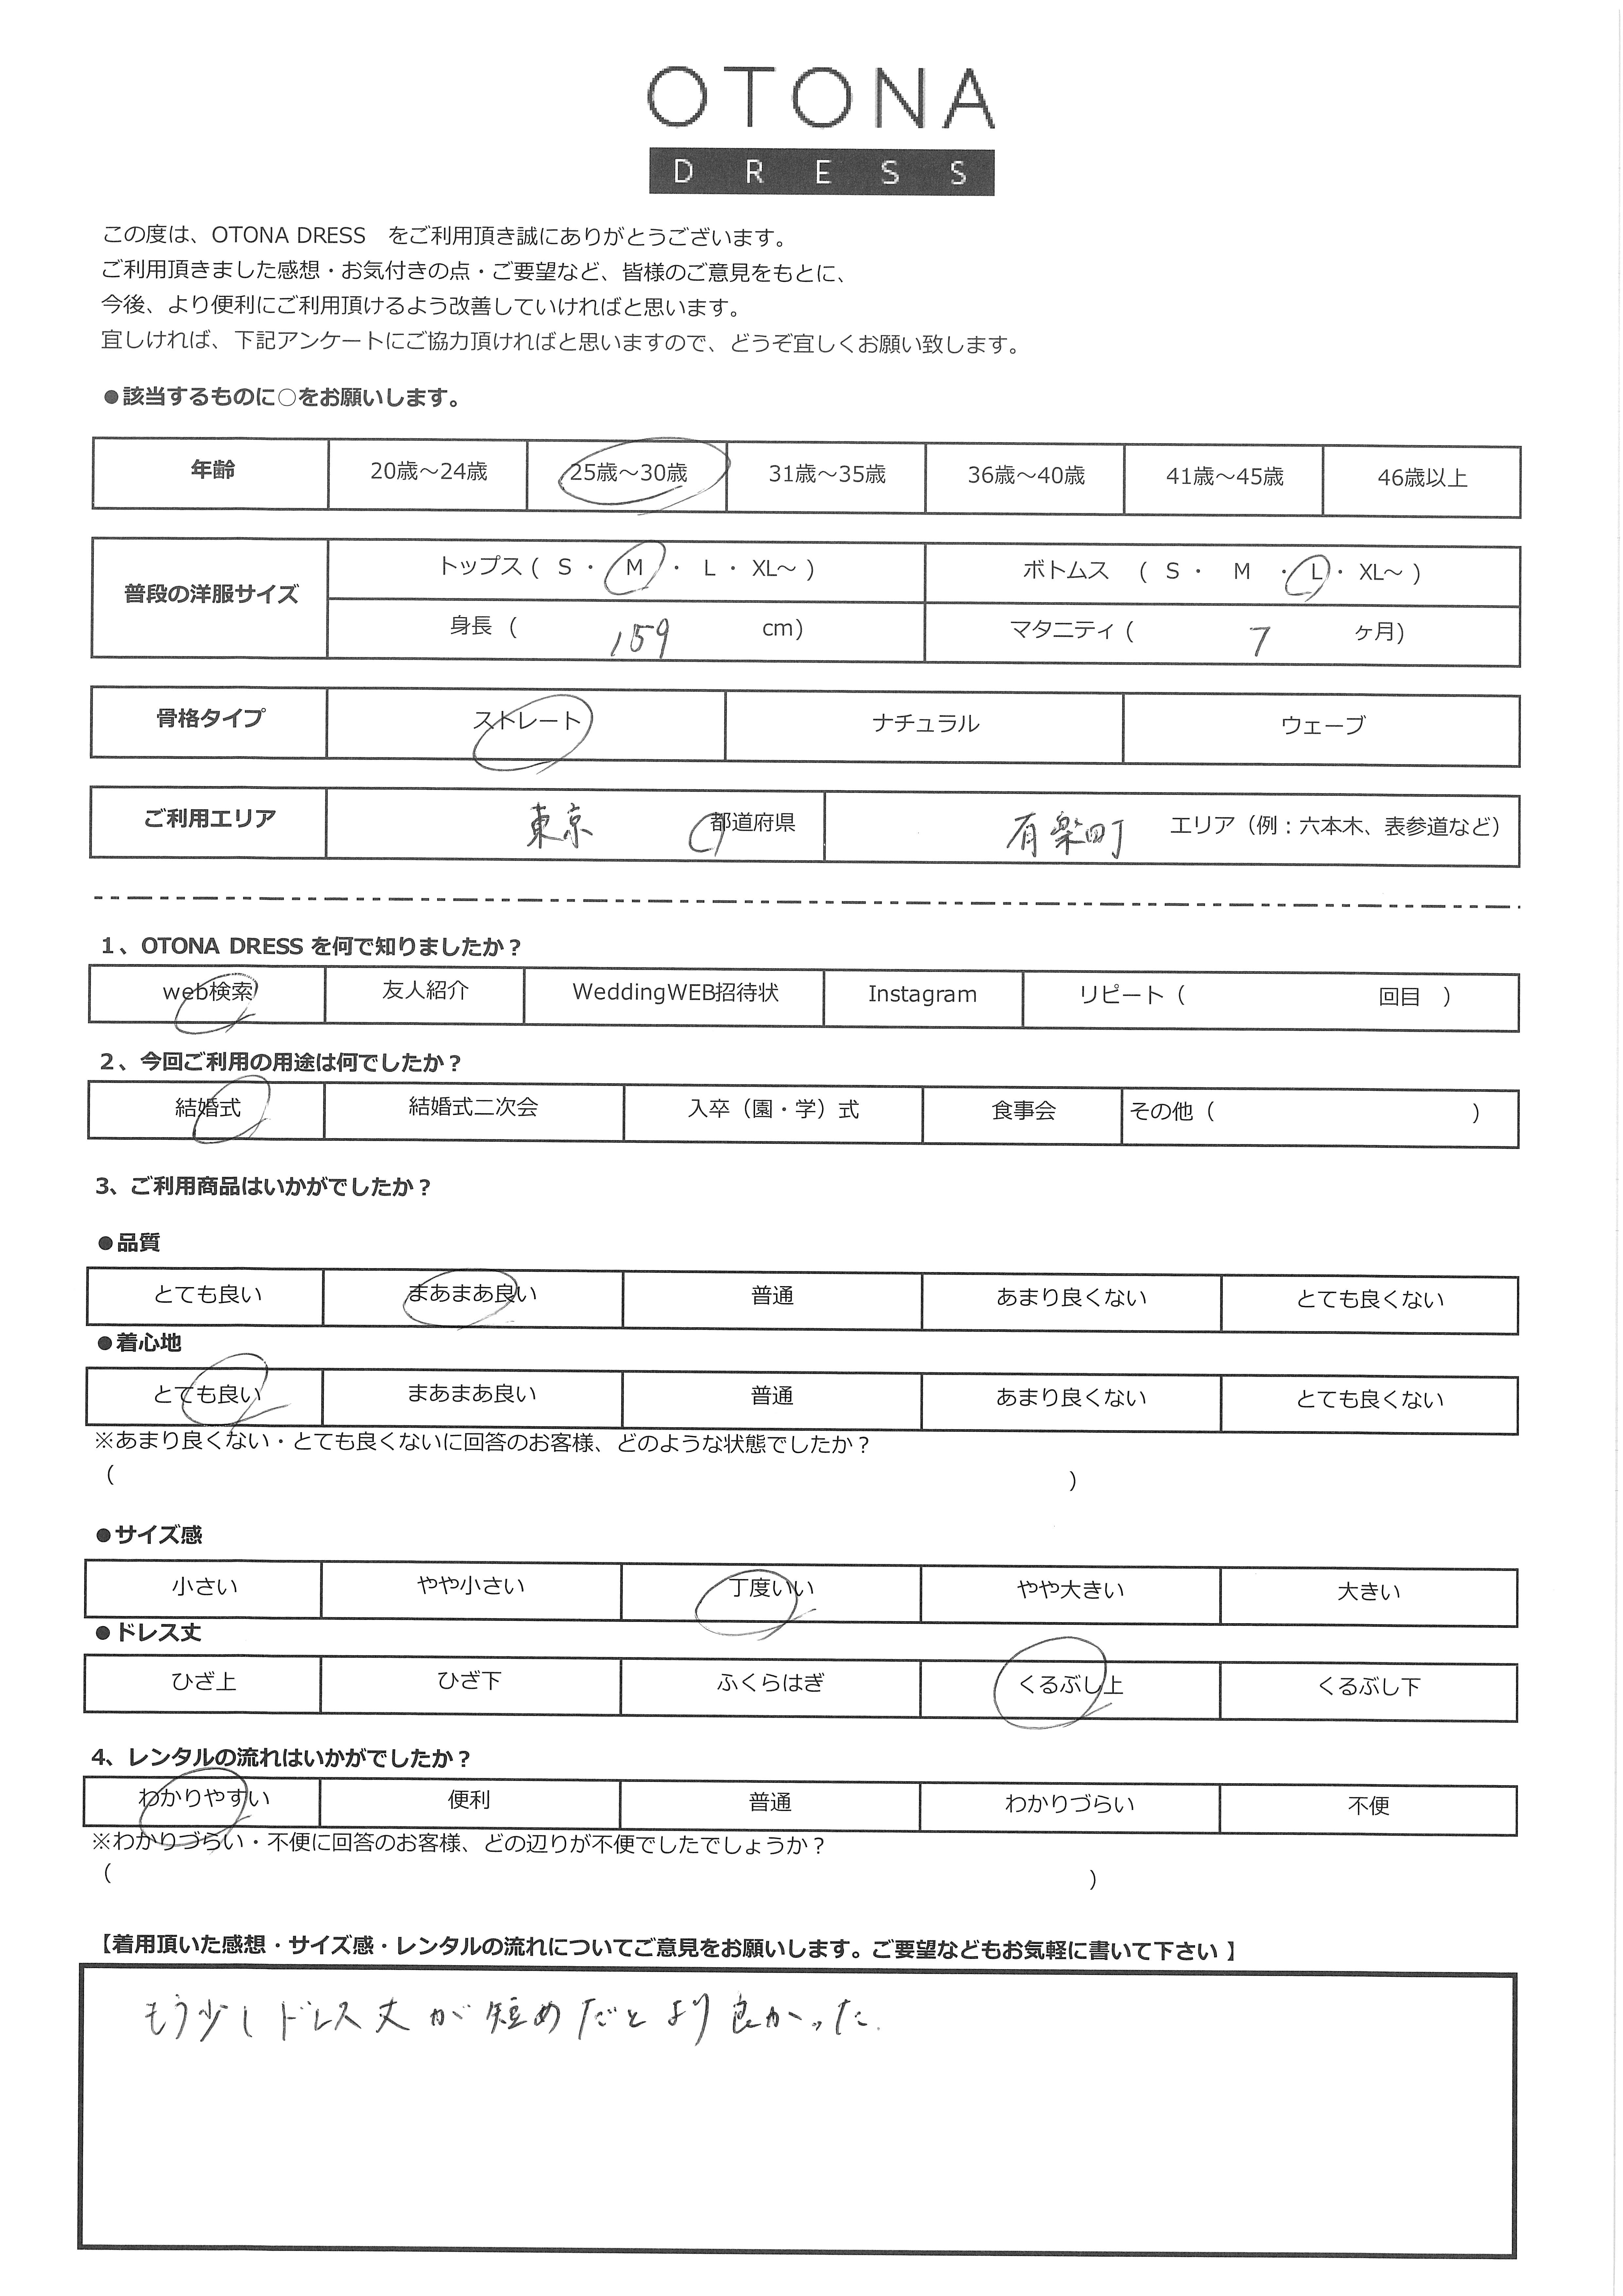 OTONA
DRESS
この度は、OTONA DRESS をご利用頂き誠にありがとうございます。
ご利用頂きました感想・お気付きの点・ご要望など、皆様のご意見をもとに、
今後、より便利にご利用頂けるよう改善していければと思います。
宜しければ、下記アンケートにご協力頂ければと思いますので、どうぞ宜しくお願い致します。
●該当するものに○をお願いします。
年齢 20歳～24歳 25歳～30歳 31歳～35歳 36歳～40歳 41歳～45歳 46歳以上
普段の洋服サイズ
トップス ( S ・ M ・ L ・ XL～ ) ボトムス ( S ・ M ・ L ・ XL～ )
身長 ( 159 cm) マタニティ ( 7 ヶ月)
骨格タイプ ストレート ナチュラル ウェーブ
ご利用エリア 東京 都道府県 有楽町 エリア（例：六本木、表参道など）
1、OTONA DRESS を何で知りましたか？
web検索 友人紹介 WeddingWEB招待状 Instagram リピート（ 回目 ）
2、今回ご利用の用途は何でしたか？
結婚式 結婚式二次会 入卒（園・学）式 食事会 その他（ ）
3、ご利用商品はいかがでしたか？
●品質
とても良い まあまあ良い 普通 あまり良くない とても良くない
●着心地
とても良い まあまあ良い 普通 あまり良くない とても良くない
※あまり良くない・とても良くないに回答のお客様、どのような状態でしたか？
（ ）
●サイズ感
小さい やや小さい 丁度いい やや大きい 大きい
●ドレス丈
ひざ上 ひざ下 ふくらはぎ くるぶし上 くるぶし下
4、レンタルの流れはいかがでしたか？
わかりやすい 便利 普通 わかりづらい 不便
※わかりづらい・不便に回答のお客様、どの辺りが不便でしたでしょうか？
（ ）
【着用頂いた感想・サイズ感・レンタルの流れについてご意見をお願いします。ご要望などもお気軽に書いて下さい】
もう少しドレス丈が短めだとより良かった.